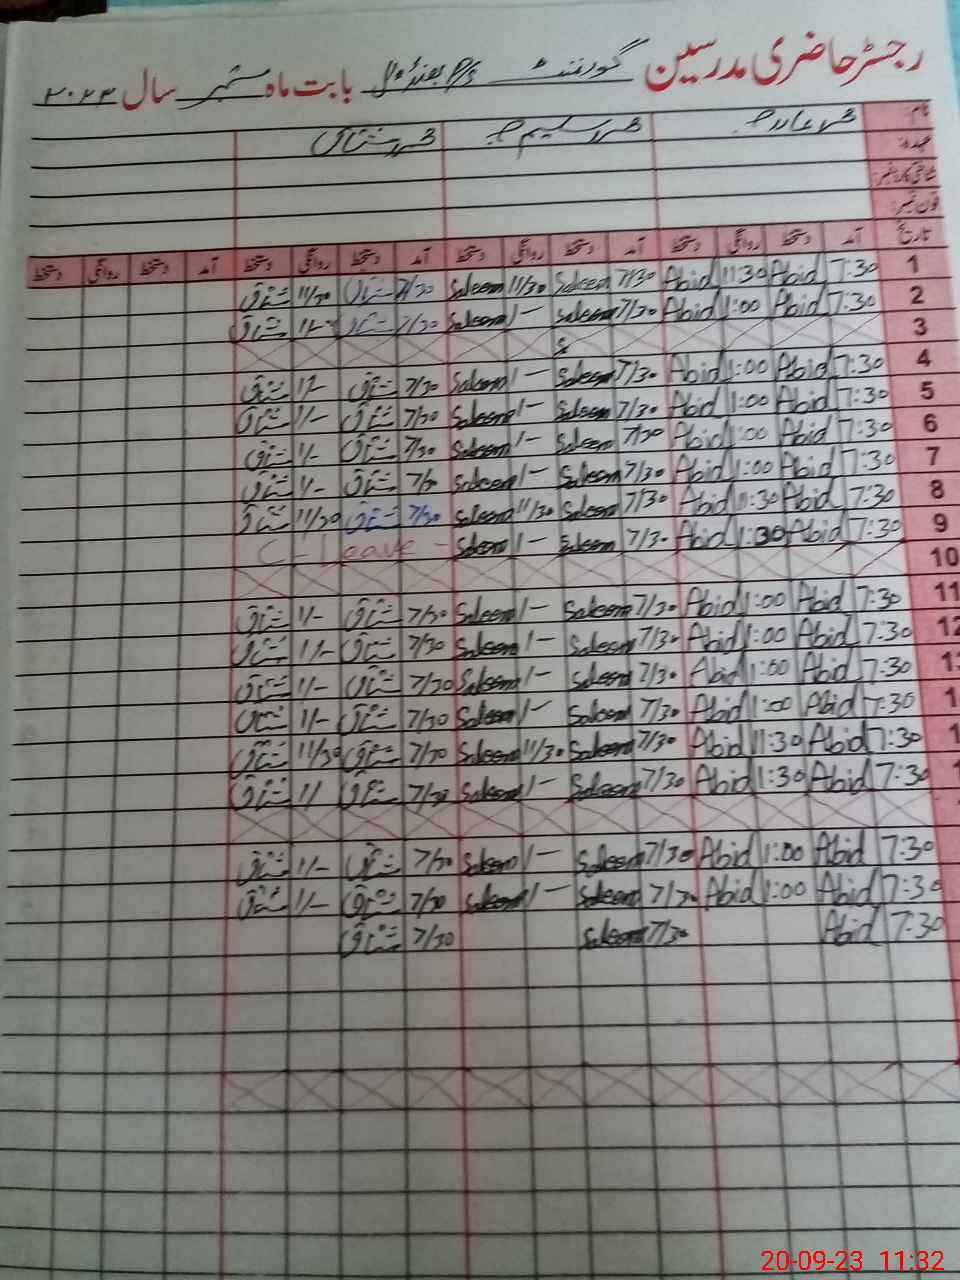 رجسٹر حاضری مدرسین گورنمنٹ P/S بابت ماہ ستمبر سال ۲۰۲۳
نام: محمد عابد محمد سلیم محمد مشتاق
عہدہ:
شناختی کارڈ نمبر:
فون نمبر:
تاریخ آمد دستخط روانگی دستخط آمد دستخط روانگی دستخط آمد دستخط روانگی دستخط آمد دستخط روانگی دستخط
1 7:30 Abid 11:30 Abid 7/30 Saleem 11/30 Saleem 7/30 مشتاق 11/30 مشتاق
2 7:30 Abid 1:00 Abid 7/30 Saleem 1/- Saleem 7/30 مشتاق 1/- مشتاق
3
4 7:30 Abid 1:00 Abid 7/30 Saleem 1/- Saleem 7/30 مشتاق 1/- مشتاق
5 7:30 Abid 1:00 Abid 7/30 Saleem 1/- Saleem 7/30 مشتاق 1/- مشتاق
6 7:30 Abid 1:00 Abid 7/30 Saleem 1/- Saleem 7/30 مشتاق 1/- مشتاق
7 7:30 Abid 1:00 Abid 7/30 Saleem 1/- Saleem 7/30 مشتاق 1/- مشتاق
8 7:30 Abid 11:30 Abid 7/30 Saleem 11/30 Saleem 7/30 مشتاق 11/30 مشتاق
9 7:30 Abid 1:30 Abid 7/30 Saleem 1/- Saleem C-Leave -
10
11 7:30 Abid 1:00 Abid 7/30 Saleem 1/- Saleem 7/30 مشتاق 1/- مشتاق
12 7:30 Abid 1:00 Abid 7/30 Saleem 1/- Saleem 7/30 مشتاق 1/- مشتاق
7:30 Abid 1:00 Abid 7/30 Saleem 1/- Saleem 7/30 مشتاق 1/- مشتاق
7:30 Abid 1:00 Abid 7/30 Saleem 1/- Saleem 7/30 مشتاق 1/- مشتاق
7:30 Abid 11:30 Abid 7/30 Saleem 11/30 Saleem 7/30 مشتاق 11/30 مشتاق
7:30 Abid 1:30 Abid 7/30 Saleem 1/- Saleem 7/30 مشتاق 1/ مشتاق
7:30 Abid 1:00 Abid 7/30 Saleem 1/- Saleem 7/30 مشتاق 1/- مشتاق
7:30 Abid 1:00 Abid 7/30 Saleem 1/- Saleem 7/30 مشتاق 1/- مشتاق
7:30 Abid 7/30 Saleem 7/30 مشتاق
20-09-23 11:32